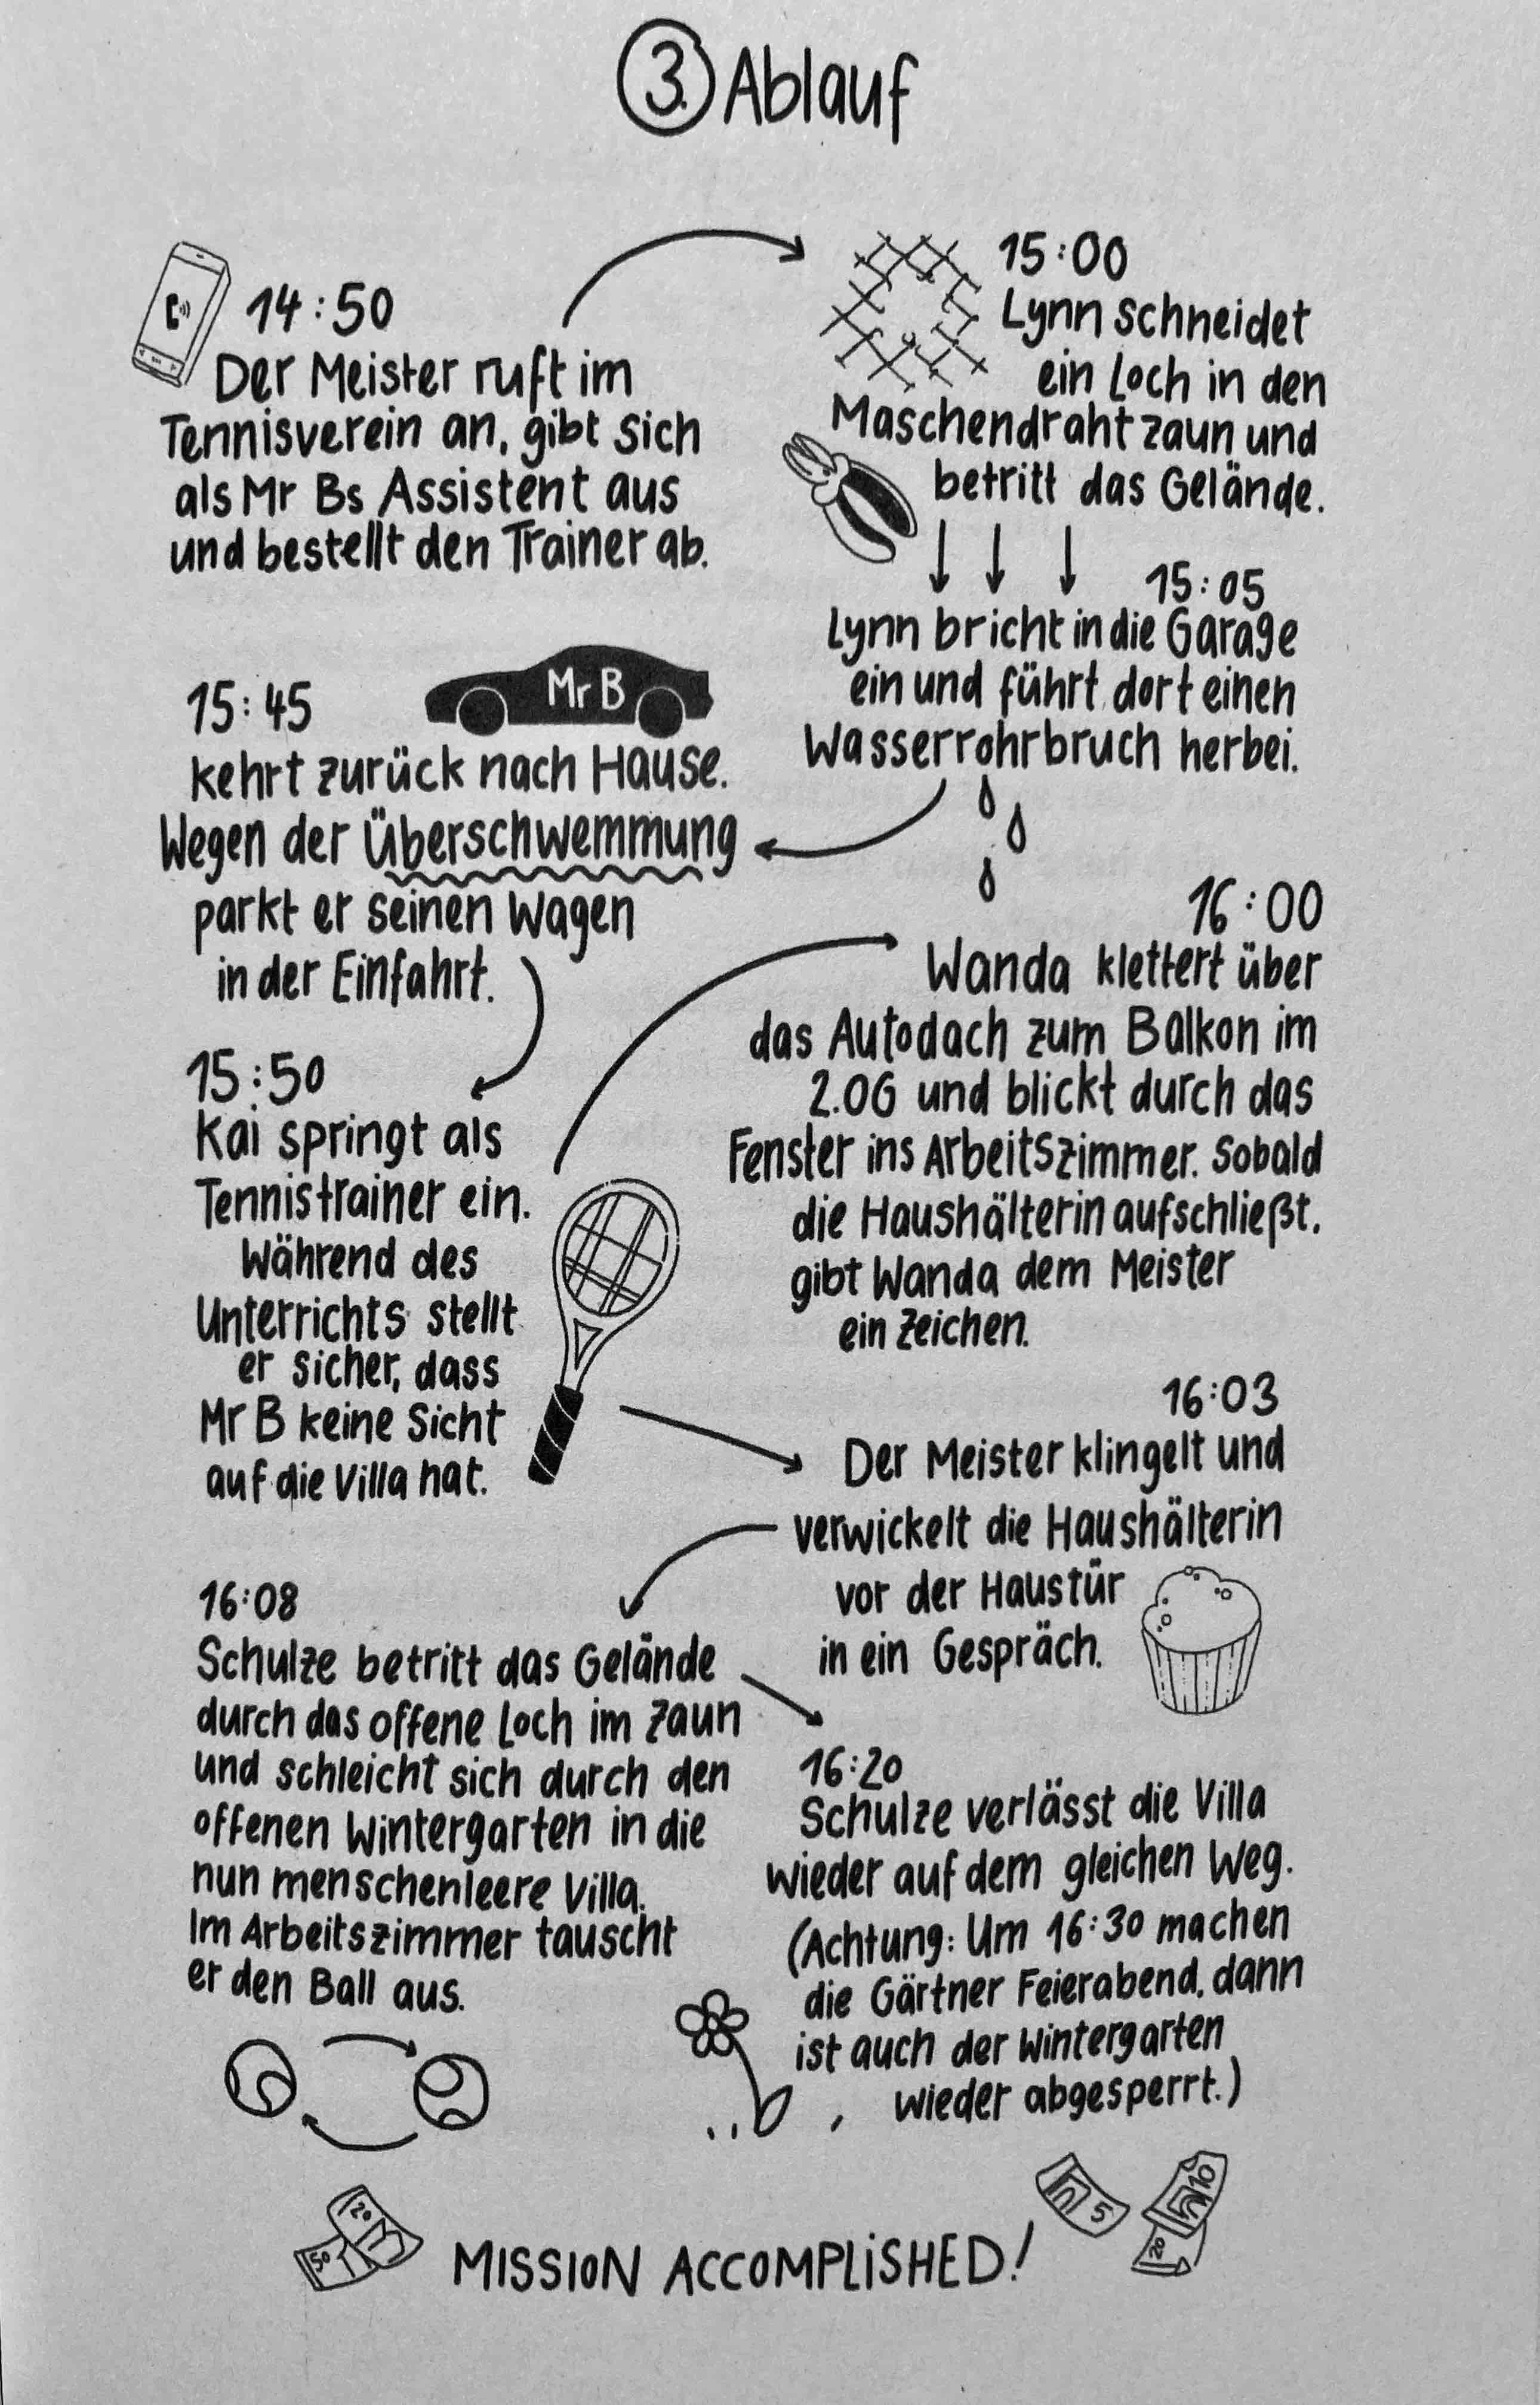 3. Ablauf
14:50
Der Meister ruft im
Tennisverein an, gibt sich
als Mr Bs Assistent aus
und bestellt den Trainer ab.
15:00
Lynn schneidet
ein Loch in den
Maschendrahtzaun und
betritt das Gelände.
15:05
Lynn bricht in die Garage
ein und führt dort einen
Wasserrohrbruch herbei.
15:45
Mr B
kehrt zurück nach Hause.
Wegen der Überschwemmung
parkt er seinen Wagen
in der Einfahrt.
15:50
Kai springt als
Tennistrainer ein.
Während des
Unterrichts stellt
er sicher, dass
Mr B keine Sicht
auf die Villa hat.
16:00
Wanda klettert über
das Autodach zum Balkon im
2.OG und blickt durch das
Fenster ins Arbeitszimmer. Sobald
die Haushälterin aufschließt,
gibt Wanda dem Meister
ein Zeichen.
16:03
Der Meister klingelt und
verwickelt die Haushälterin
vor der Haustür
in ein Gespräch.
16:08
Schulze betritt das Gelände
durch das offene Loch im Zaun
und schleicht sich durch den
offenen Wintergarten in die
nun menschenleere Villa.
Im Arbeitszimmer tauscht
er den Ball aus.
16:20
Schulze verlässt die Villa
wieder auf dem gleichen Weg.
(Achtung: Um 16:30 machen
die Gärtner Feierabend, dann
ist auch der Wintergarten
wieder abgesperrt.)
20
50
MISSION ACCOMPLISHED!
5
10
20